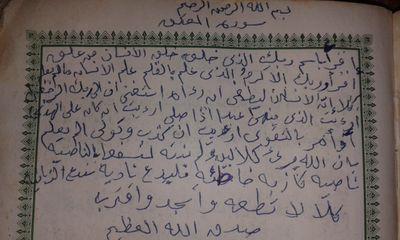 بسم الله الرحمن الرحيم
سورة العلق
اقرأ باسم ربك الذي خلق خلق الإنسان من علق
اقرأ وربك الأكرم الذي علم بالقلم علم الإنسان ما لم يعلم
كلا إن الإنسان ليطغى أن رءاه استغنى إن إلى ربك الرجعى
أرءيت الذي ينهى عبدا إذا صلى أرءيت إن كان على الهدى
أو أمر بالتقوى أرءيت إن كذب وتولى ألم يعلم
بأن الله يرى كلا لئن لم ينته لنسفعا بالناصية
ناصية كاذبة خاطئة فليدع ناديه سندع الزبانية
كلا لا تطعه واسجد واقترب
صدق الله العظيم